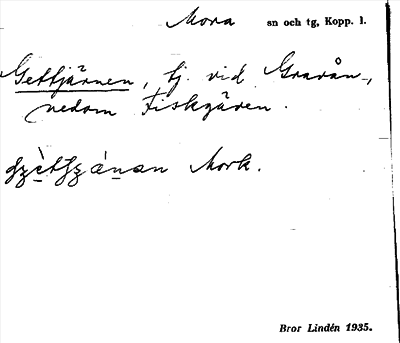 Mora sn och tg, Kopp. l.
Gettjärnen, tj. vid Gravån,
nedom Fiskgären.
Mork.
Bror Lindén 1935.